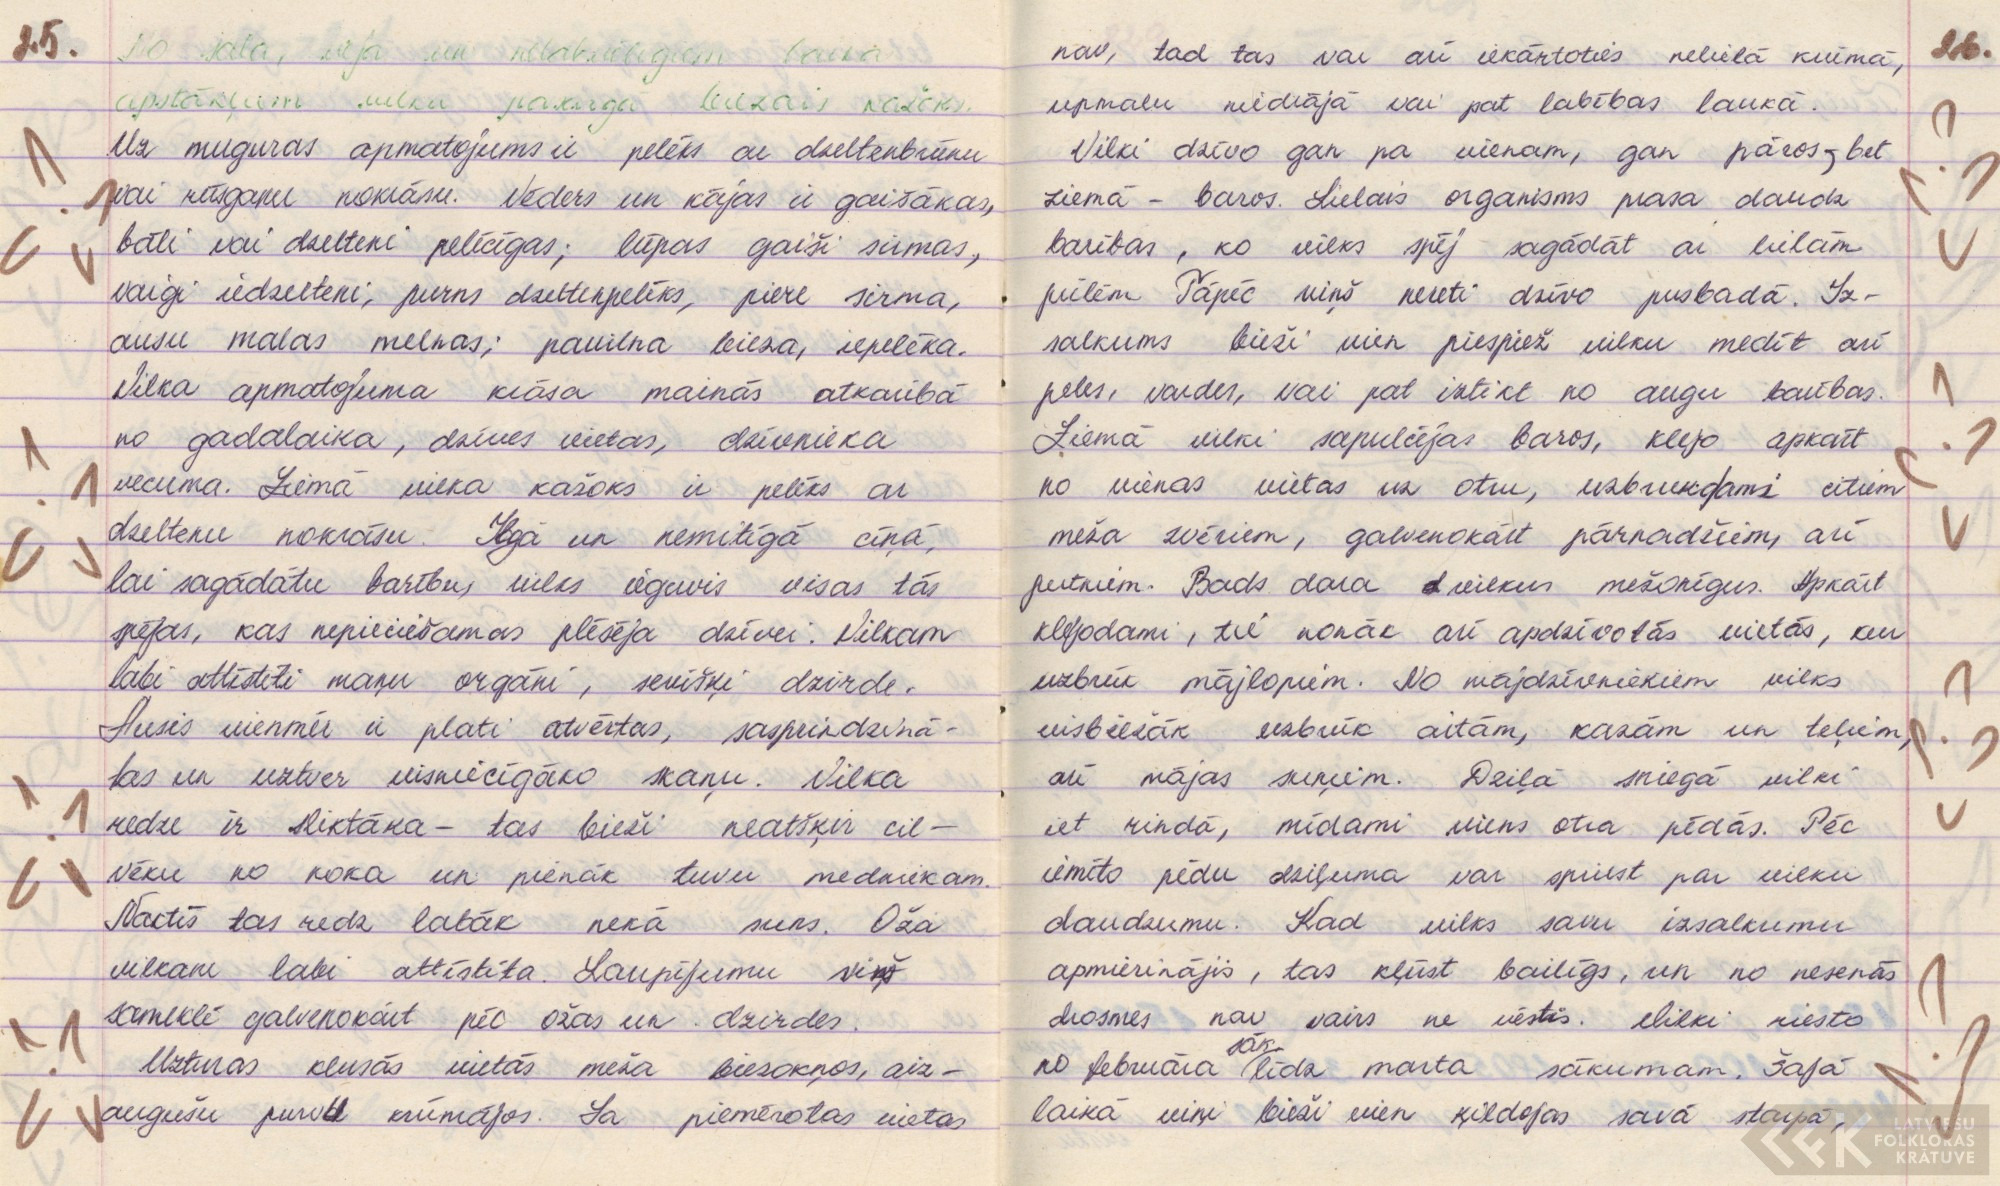 25.
No sala, vēja un nelabvēlīgiem laika
apstākļiem vilku pasarga biezais kažoks.
Uz muguras apmatojums ir pelēks ar dzeltenbrūnu
vai rūsganu nokrāsu. Vēders un kājas ir gaišākas,
bāli vai dzelteni pelēcīgas; lūpas gaiši sirmas,
vaigi iedzelteni, purns dzeltenpelēks, piere sirma,
ausu malas melnas; pavilna bieza, iepelēka.
Vilka apmatojuma krāsa mainās atkarībā
no gadalaika, dzīves vietas, dzīvnieka
vecuma. Ziemā vilka kažoks ir pelēks ar
dzeltenu nokrāsu. Ilgā un nemitīgā cīņā,
lai sagādātu barību, vilks ieguvis visas tās
spējas, kas nepieciešamas plēsēja dzīvei. Vilkam
labi attīstīti maņu orgāni, sevišķi dzirde.
Ausis vienmēr ir plati atvērtas, sasprindzinā-
tas un uztver visniecīgāko skaņu. Vilka
redze ir sliktāka - tas bieži neatšķir cil-
vēku no koka un pienāk tuvu medniekam.
Naktīs tas redz labāk nekā suns. Oža
vilkam labi attīstīta. Laupījumu viņš
sameklē galvenokārt pēc ožas un dzirdes.
Uzturas klusās vietās meža biezokņos, aiz-
augušu purvu krūmājos. Ja piemērotas vietas
26.
nav, tad tas var arī iekārtoties nelielā krūmā,
upmalu niedrājā vai pat labības laukā.
Vilki dzīvo gan pa vienam, gan pāros, bet
ziemā - baros. Lielais organisms prasa daudz
barības, ko vilks spēj sagādāt ar lielām
pūlēm Tāpēc viņš nereti dzīvo pusbadā. Iz-
salkums bieži vien piespiež vilku medīt arī
peles, vardes, vai pat iztikt no augu barības.
Ziemā vilki sapulcējas baros, klejo apkārt
no vienas vietas uz otru, uzbrukdami citiem
meža zvēriem, galvenokārt pārnadžiem, arī
putniem. Bads dara vilkus mežonīgus. Apkārt
klejodami, tie nonāk arī apdzīvotās vietās, kur
uzbrūk mājlopiem. No mājdzīvniekiem vilks
visbiežāk uzbrūk aitām, kazām un teļiem,
arī mājas suņiem. Dziļā sniegā vilki
iet rindā, mīdami viens otra pēdās. Pēc
iemīto pēdu dziļuma var spriest par vilku
daudzumu. Kad vilks savu izsalkumu
apmierinājis, tas kļūst bailīgs, un no nesenās
drosmes nav vairs ne vēsts. Vilki riesto
sāk.
no februāra līdz marta sākumam. Šajā
laikā viņi bieži vien ķildojas savā starpā,
LATVIEŠU
FOLKLORAS
KRĀTUVE